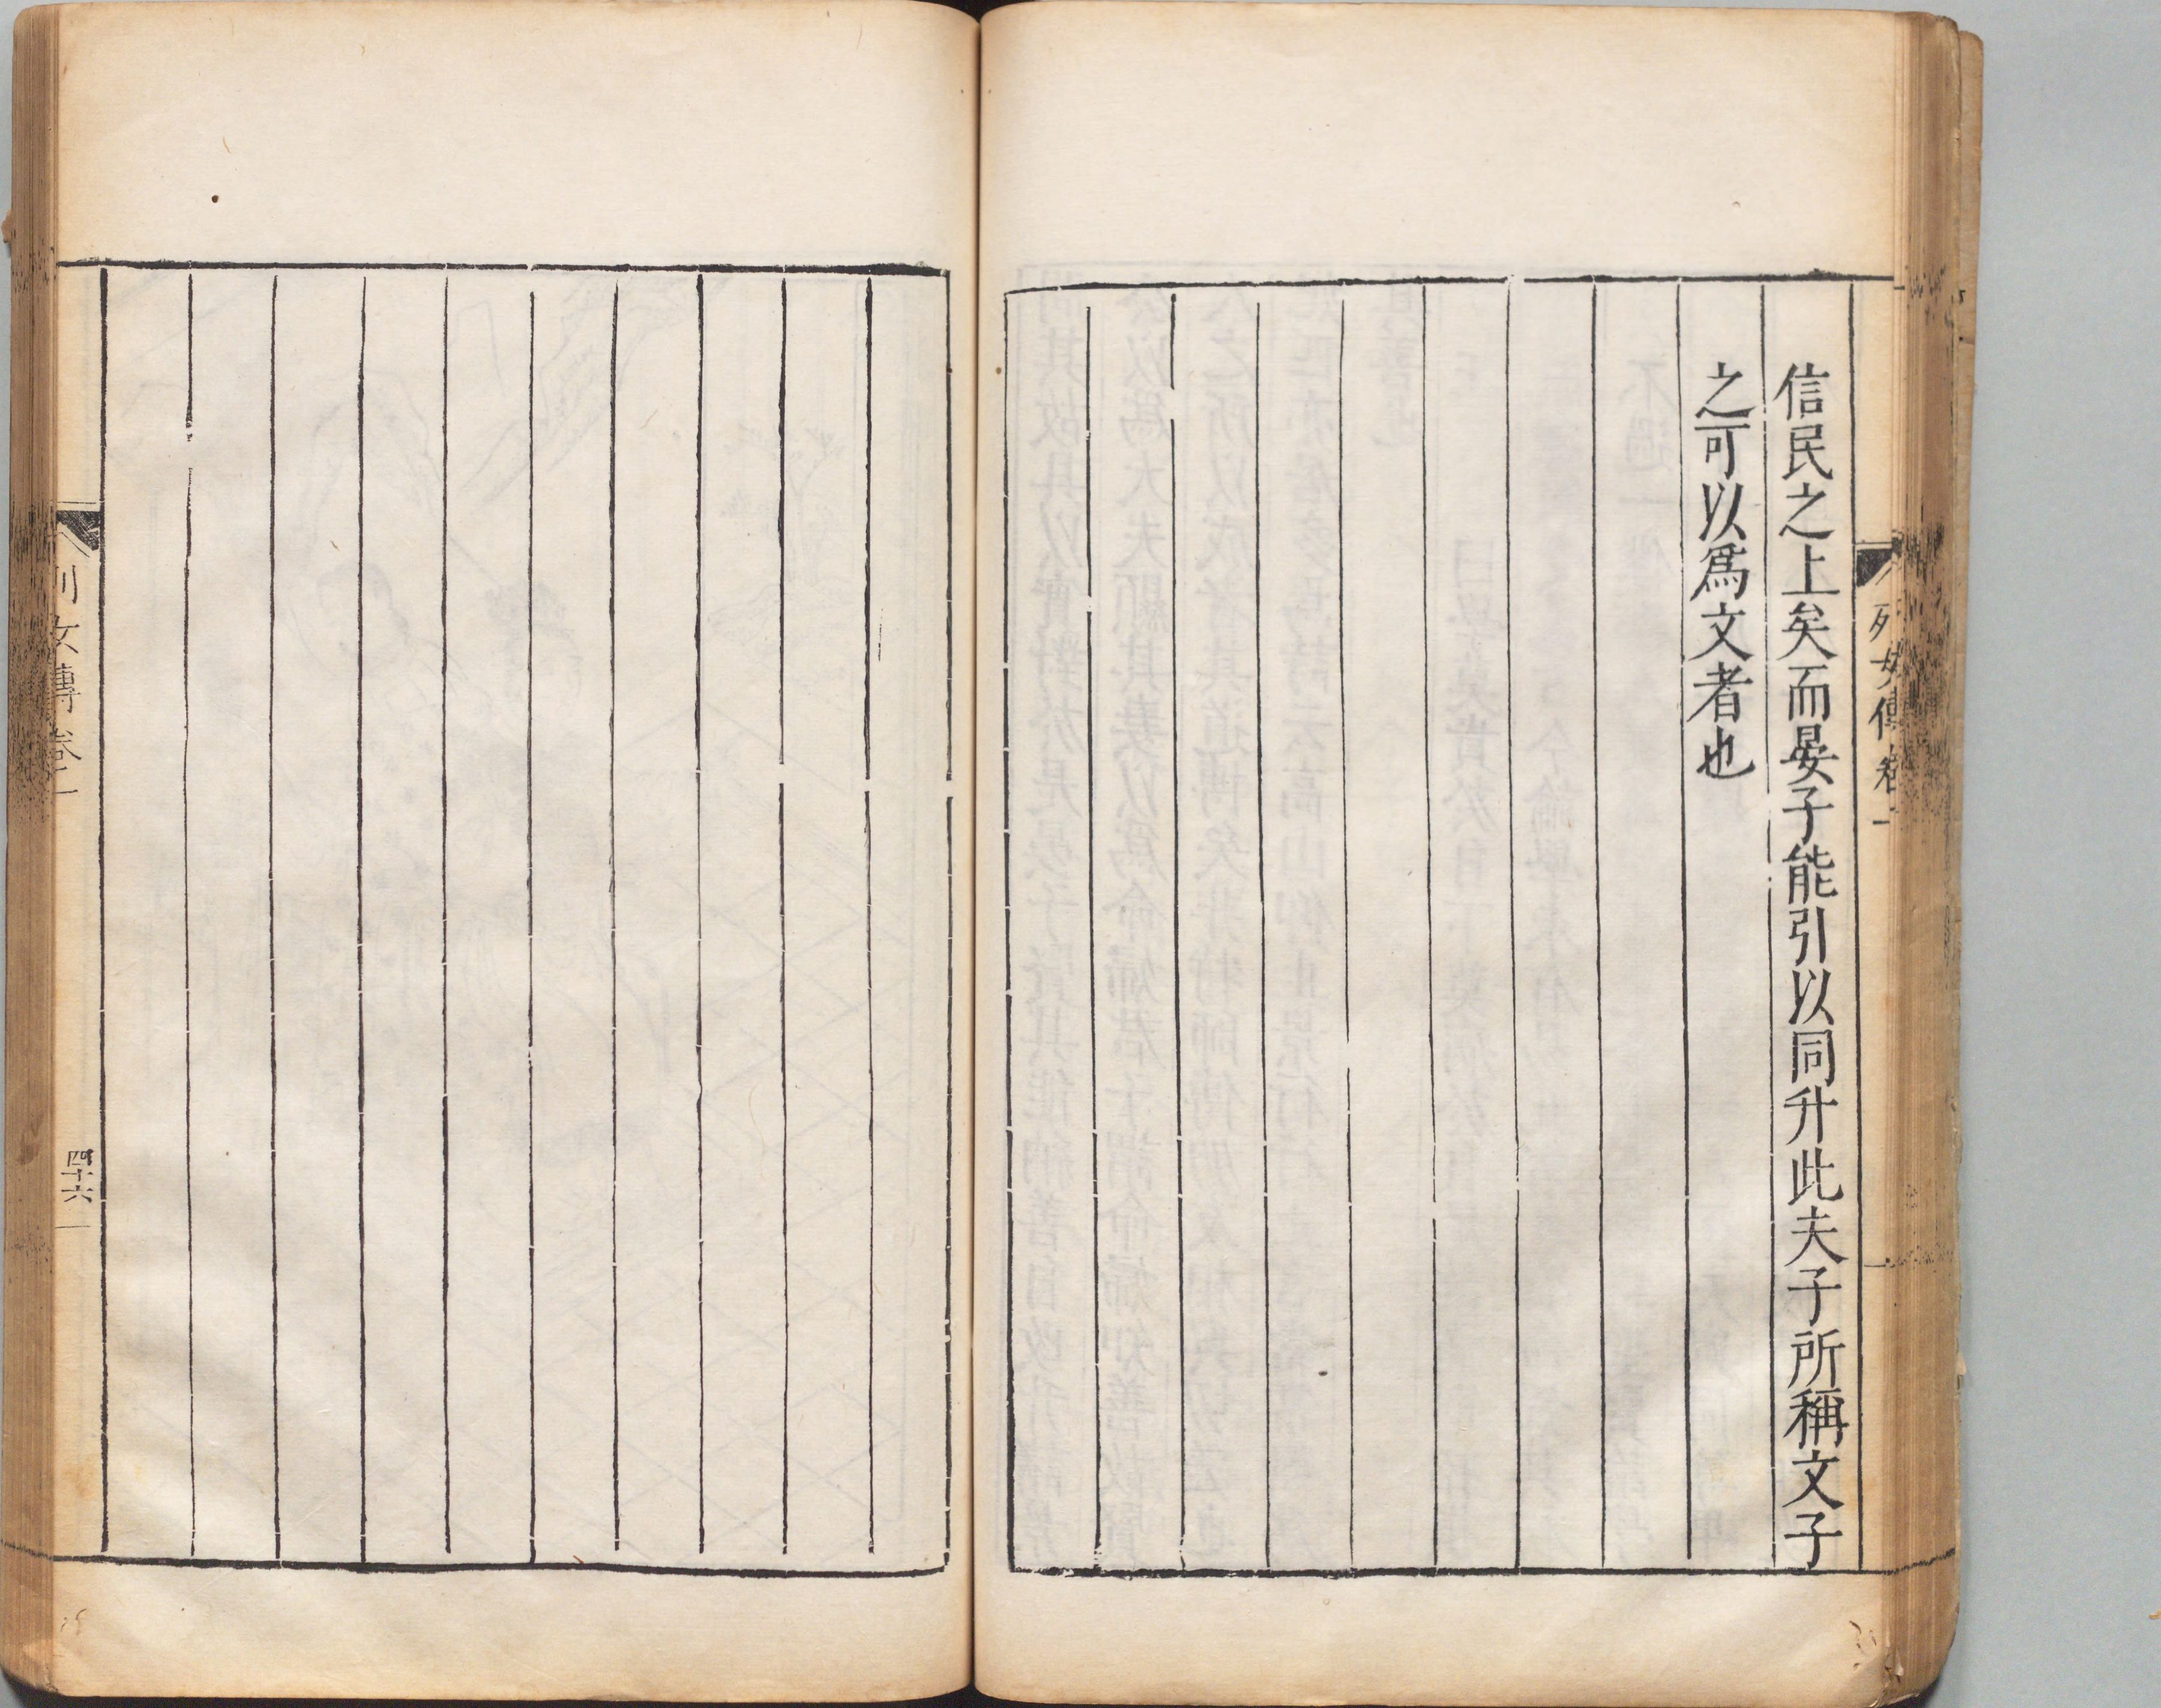 列女傳卷一
信民之上矣而晏子能引以同升此夫子所稱文子
之可以爲文者也
列女傳卷一
四十六